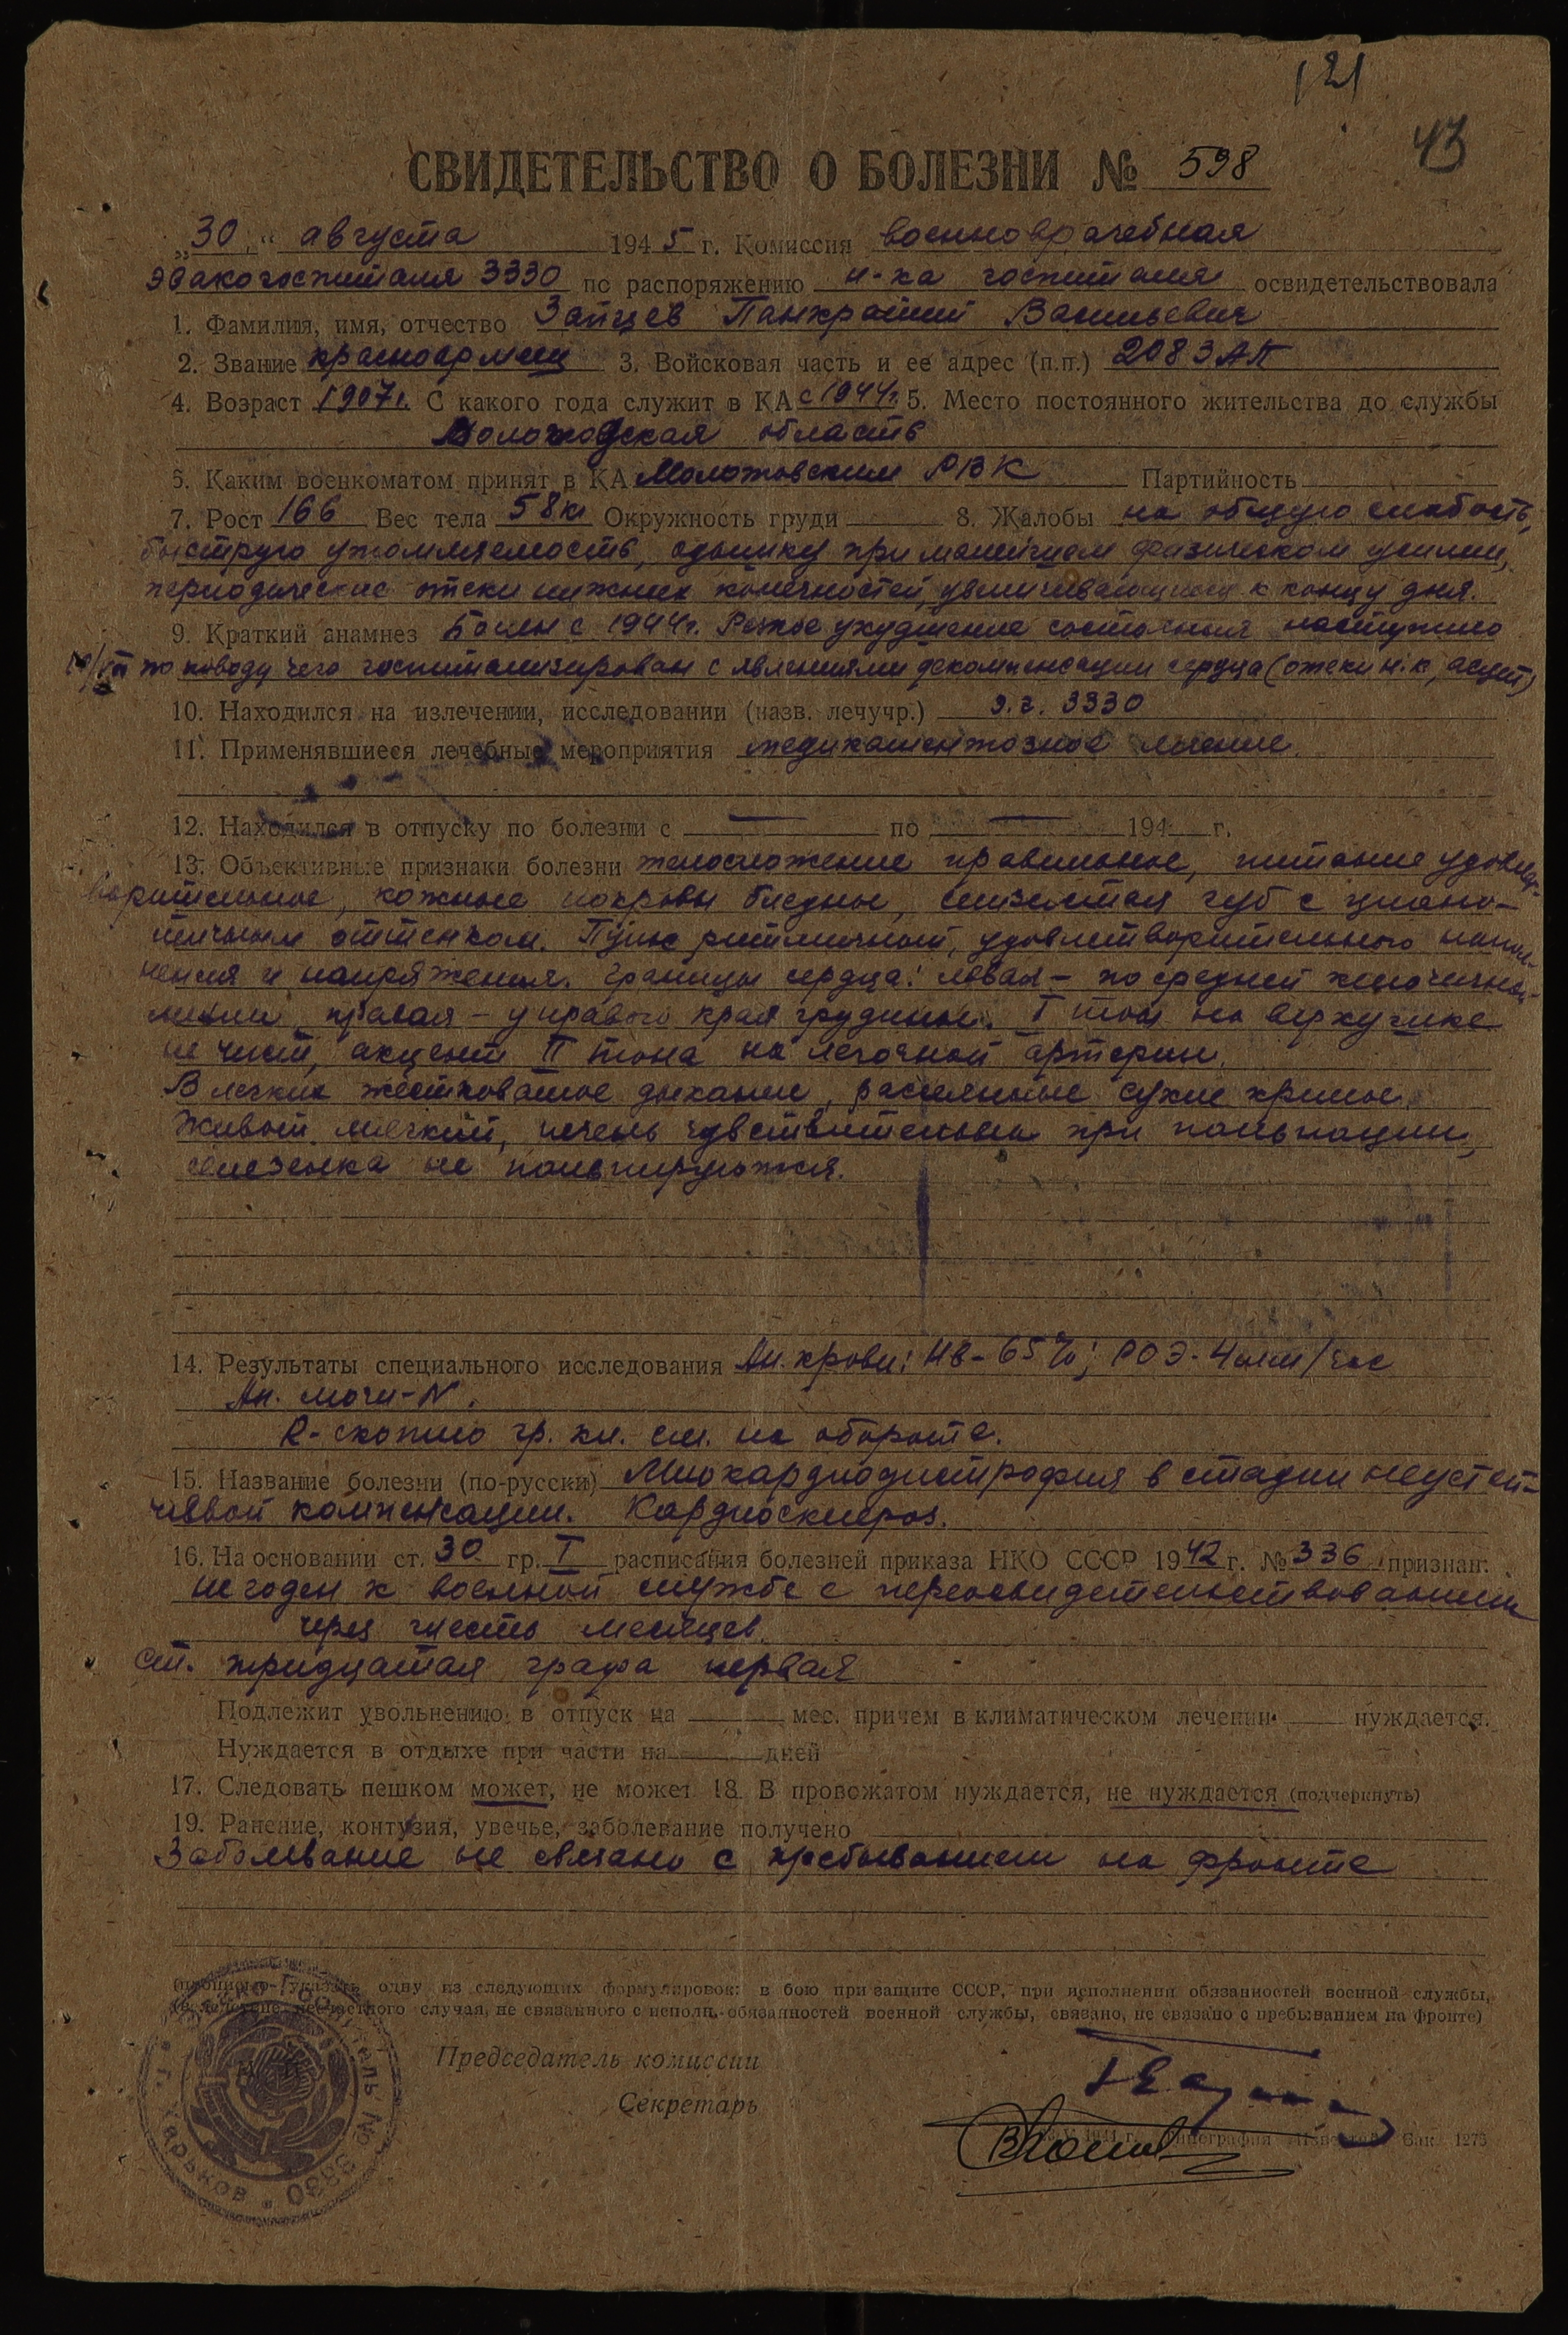 121
43
СВИДЕТЕЛЬСТВО О БОЛЕЗНИ № 598
„30“ августа 1945 г. Комиссия военноврачебная
эвакогоспиталя 3330 по распоряжению н-ка госпиталя освидетельствовала
1. Фамилия, имя, отчество Зайцев Панкратий Васильевич
2. Звание красноармеец 3. Войсковая часть и ее адрес (п.п.) 208 ЗАП
4. Возраст 1907г. С какого года служит в КА с 1944г. 5. Место постоянного жительства до службы
область
6. Каким военкоматом принят в КА РВК Партийность
7. Рост 166 Вес тела 58кг Окружность груди 8. Жалобы на общую слабость,
быструю утомляемость, одышку при малейшем физическом усилии,
периодические отеки нижних конечностей, увеличивающиеся к концу дня.
9. Краткий анамнез Болен с 1944г. Резкое ухудшение состояния наступило
по поводу чего госпитализирован с явлениями декомпенсации сердца (отеки н.к, асцит)
10. Находился на излечении, исследовании (назв. лечучр.) э.г. 3330
11. Применявшиеся лечебные мероприятия медикаментозное лечение.
12. Находился в отпуску по болезни с — по — 194 г.
13. Объективные признаки болезни телосложение правильное, питание удовлет-
ворительное, кожные покровы бледные, слизистая губ с циано-
тичным оттенком. Пульс ритмичный, удовлетворительного напол-
нения и напряжения. Границы сердца: левая – по средней ключичной
линии, правая – у правого края грудины. I тон на верхушке
не чист, акцент II тона на легочной артерии.
В легких жестковатое дыхание, рассеянные сухие хрипы.
Живот мягкий, печень чувствительна при пальпации,
селезенка не пальпируется.
14. Результаты специального исследования Ан. крови: НВ-65%; РОЭ-4мм/час
Ан. мочи-N.
R-скопию гр. кл. см. на обороте.
15. Название болезни (по-русски) Миокардиодистрофия в стадии неустой-
чивой компенсации. Кардиосклероз.
16. На основании ст. 30 гр. I расписания болезней приказа НКО СССР 1942 г. № 336 признан:
не годен к военной службе с переосвидетельствованием
через шесть месяцев.
ст. тридцатая графа первая
Подлежит увольнению в отпуск на мес. причем в климатическом лечении нуждается.
Нуждается в отдыхе при части на дней
17. Следовать пешком может, не может 18. В провожатом нуждается, не нуждается (подчеркнуть)
19. Ранение, контузия, увечье, заболевание получено
Заболевание не связано с пребыванием на фронте
одну из следующих формулировок: в бою при защите СССР, при исполнении обязанностей военной службы,
несчастного случая, не связанного с исполн. обязанностей военной службы, связано, не связано с пребыванием на фронте)
Председатель комиссии
Секретарь
Зак. 1273
Госпиталь № 3330 • г. Харьков •